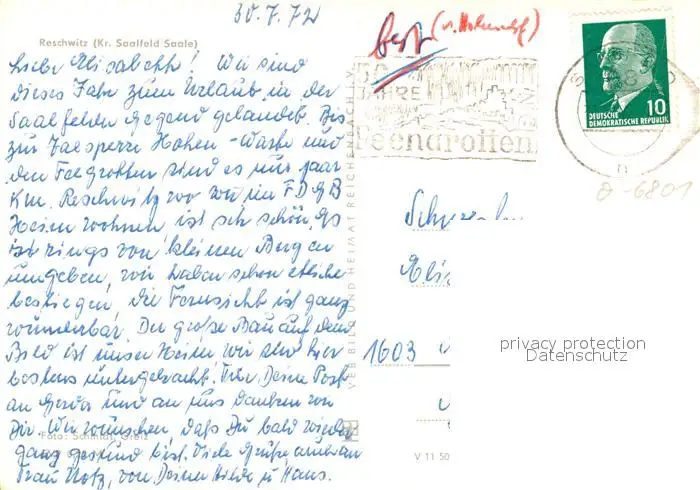 30.7.72
Reschwitz (Kr. Saalfeld Saale)
Liebe Elisabeth! Wir sind
dieses Jahr zum Urlaub in der
Saalfelder Gegend gelandet. Bis
zur Talsperre Hohen-Warte und
den Feegrotten sind es nur paar
Km. Reschwitz wo wir im FDGB
Heim wohnen ist sehr schön. Es
ist rings von kleinen Bergen
umgeben, wir haben schon etliche
bestiegen, die Fernsicht ist ganz
wunderbar. Der große Bau auf dem
Bild ist unser Heim wir sind hier
bestens untergebracht. Für Deine Post
an Gerda und an uns danken wir
Dir. Wir wünschen, daß Du bald wieder
ganz gesund bist. Viele Grüße auch an
Frau Notz, von Deinen Hilde u Hans.
Foto: Schmidt, Greiz
VEB BILD UND HEIMAT REICHENBACH I. V.
V 11 50
50
JAHRE
Feengrotten
DEUTSCHE
DEMOKRATISCHE REPUBLIK
10
0-6801
Eli
1603
privacy protection
Datenschutz